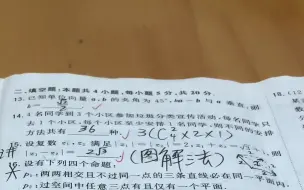 二、填空题:本题共 4 小题,每小题 5 分,共 20 分.
13. 已知单位向量 a,b 的夹角为 45°,ka-b 与 a 垂直,则
14. 4 名同学到 3 个小区参加垃圾分类宣传活动,每名同学只
去 1 个小区,每个小区至少安排 1 名同学,则不同的安排
方法共有 36 种. 3(C²₄×2×1)
15. 设复数 z₁,z₂ 满足
2√3 (图解法)
16. 设有下列四个命题:
两两相交且不过同一点的三条直线必在同一平面内.
过空间中任意三点有且仅有一个平面.